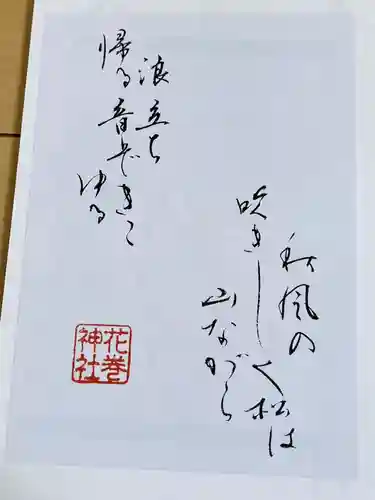 秋風の
吹きしく松は
山ながら
浪立ち
帰る音ぞきこ
ゆる
花巻
神社